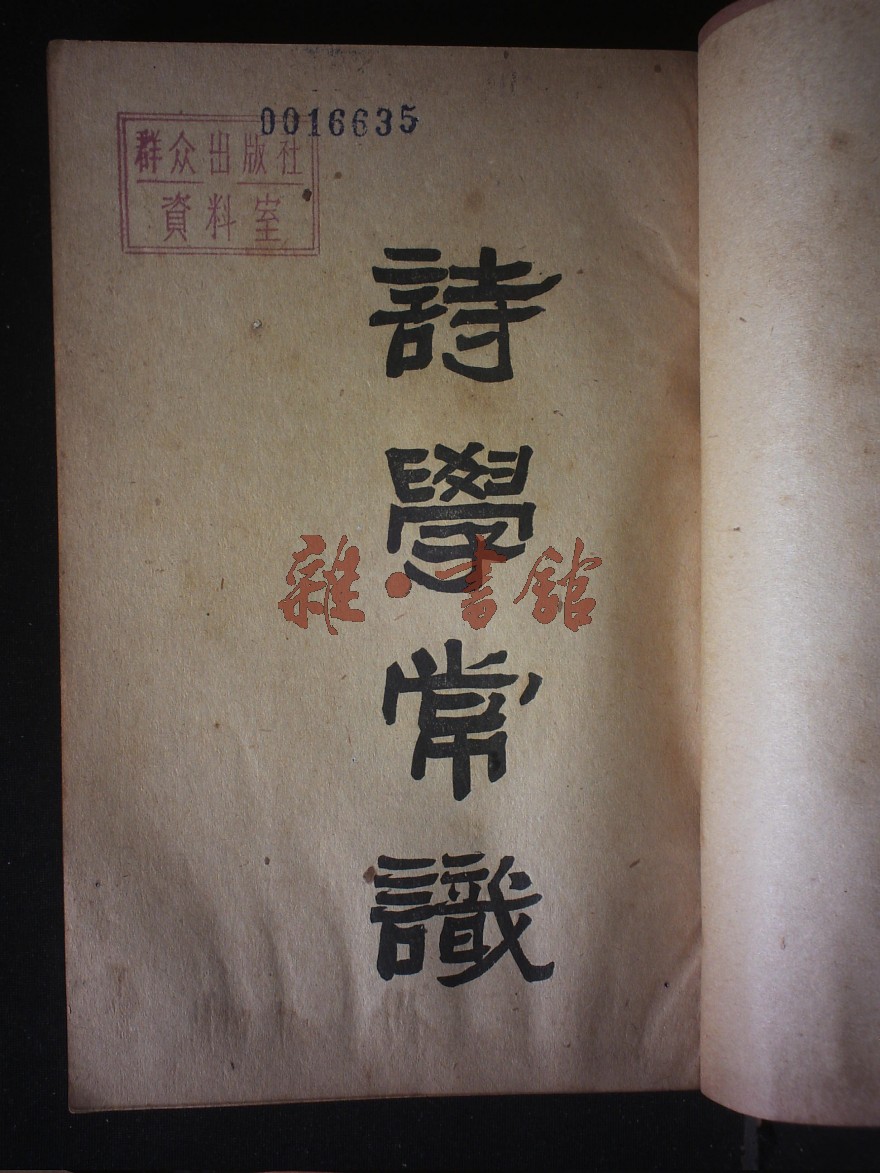 0016635
群众出版社
資料室
詩學常識
雜·書館